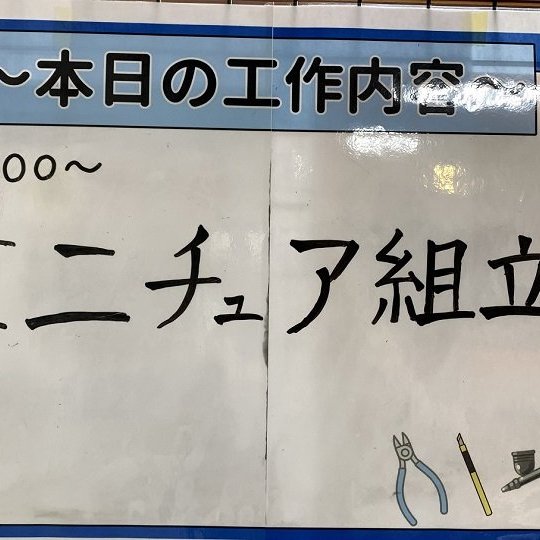 ～本日の工作内容～
00～
ニチュア組立